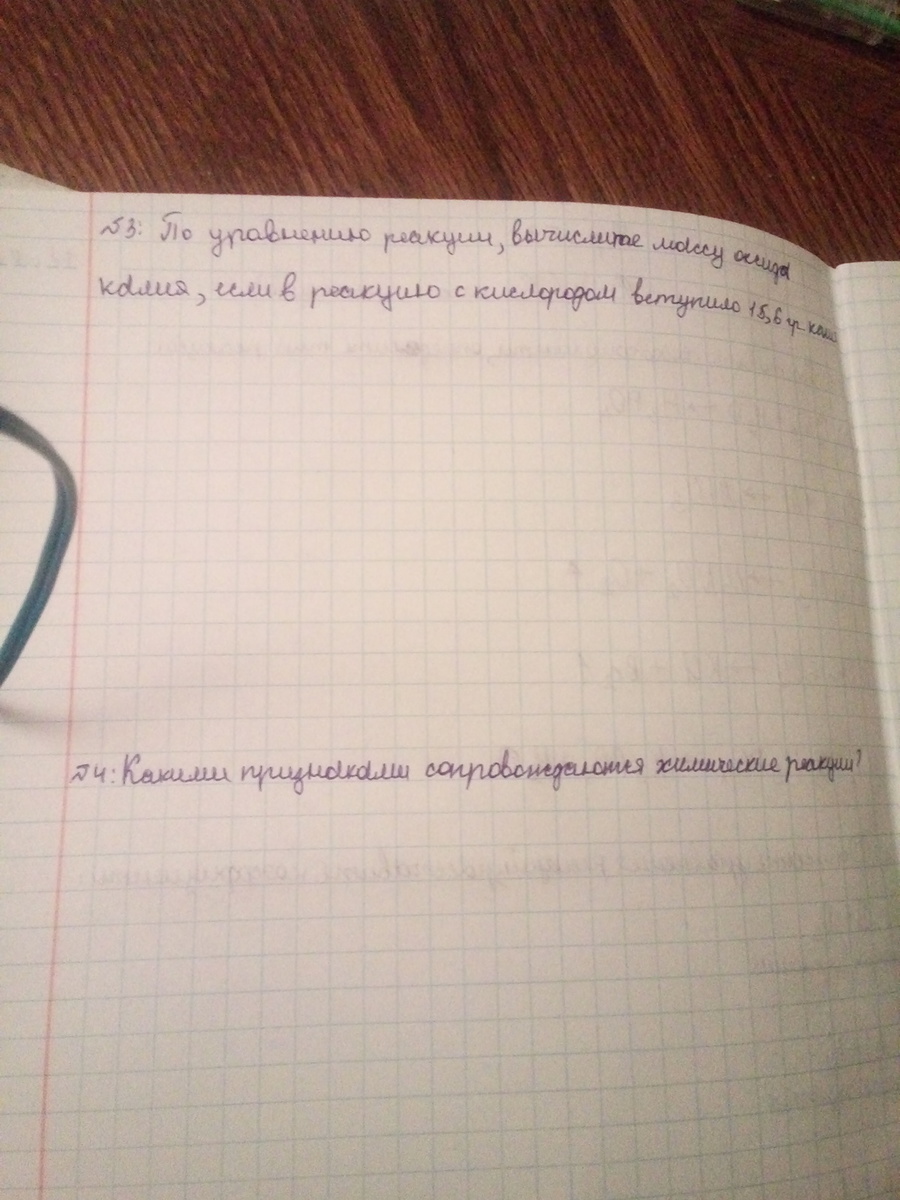 №3: По уравнению реакции, вычислите массу оксида
калия, если в реакцию с кислородом вступило 15,6 гр
№4: Какими признаками сопровождаются химические реакции?